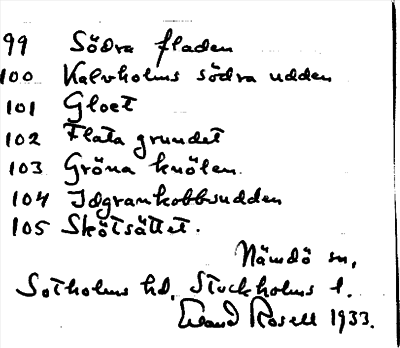 99 Södra fladen
100 Kalvholms södra udden
101 Gloet
102 Flata grundet
103 Gröna knölen.
104 Idgrankobbsudden
105 Skötsättet.
Nämdö sn,
Sotholms hd, Stockholms l.
Rosell 1933.